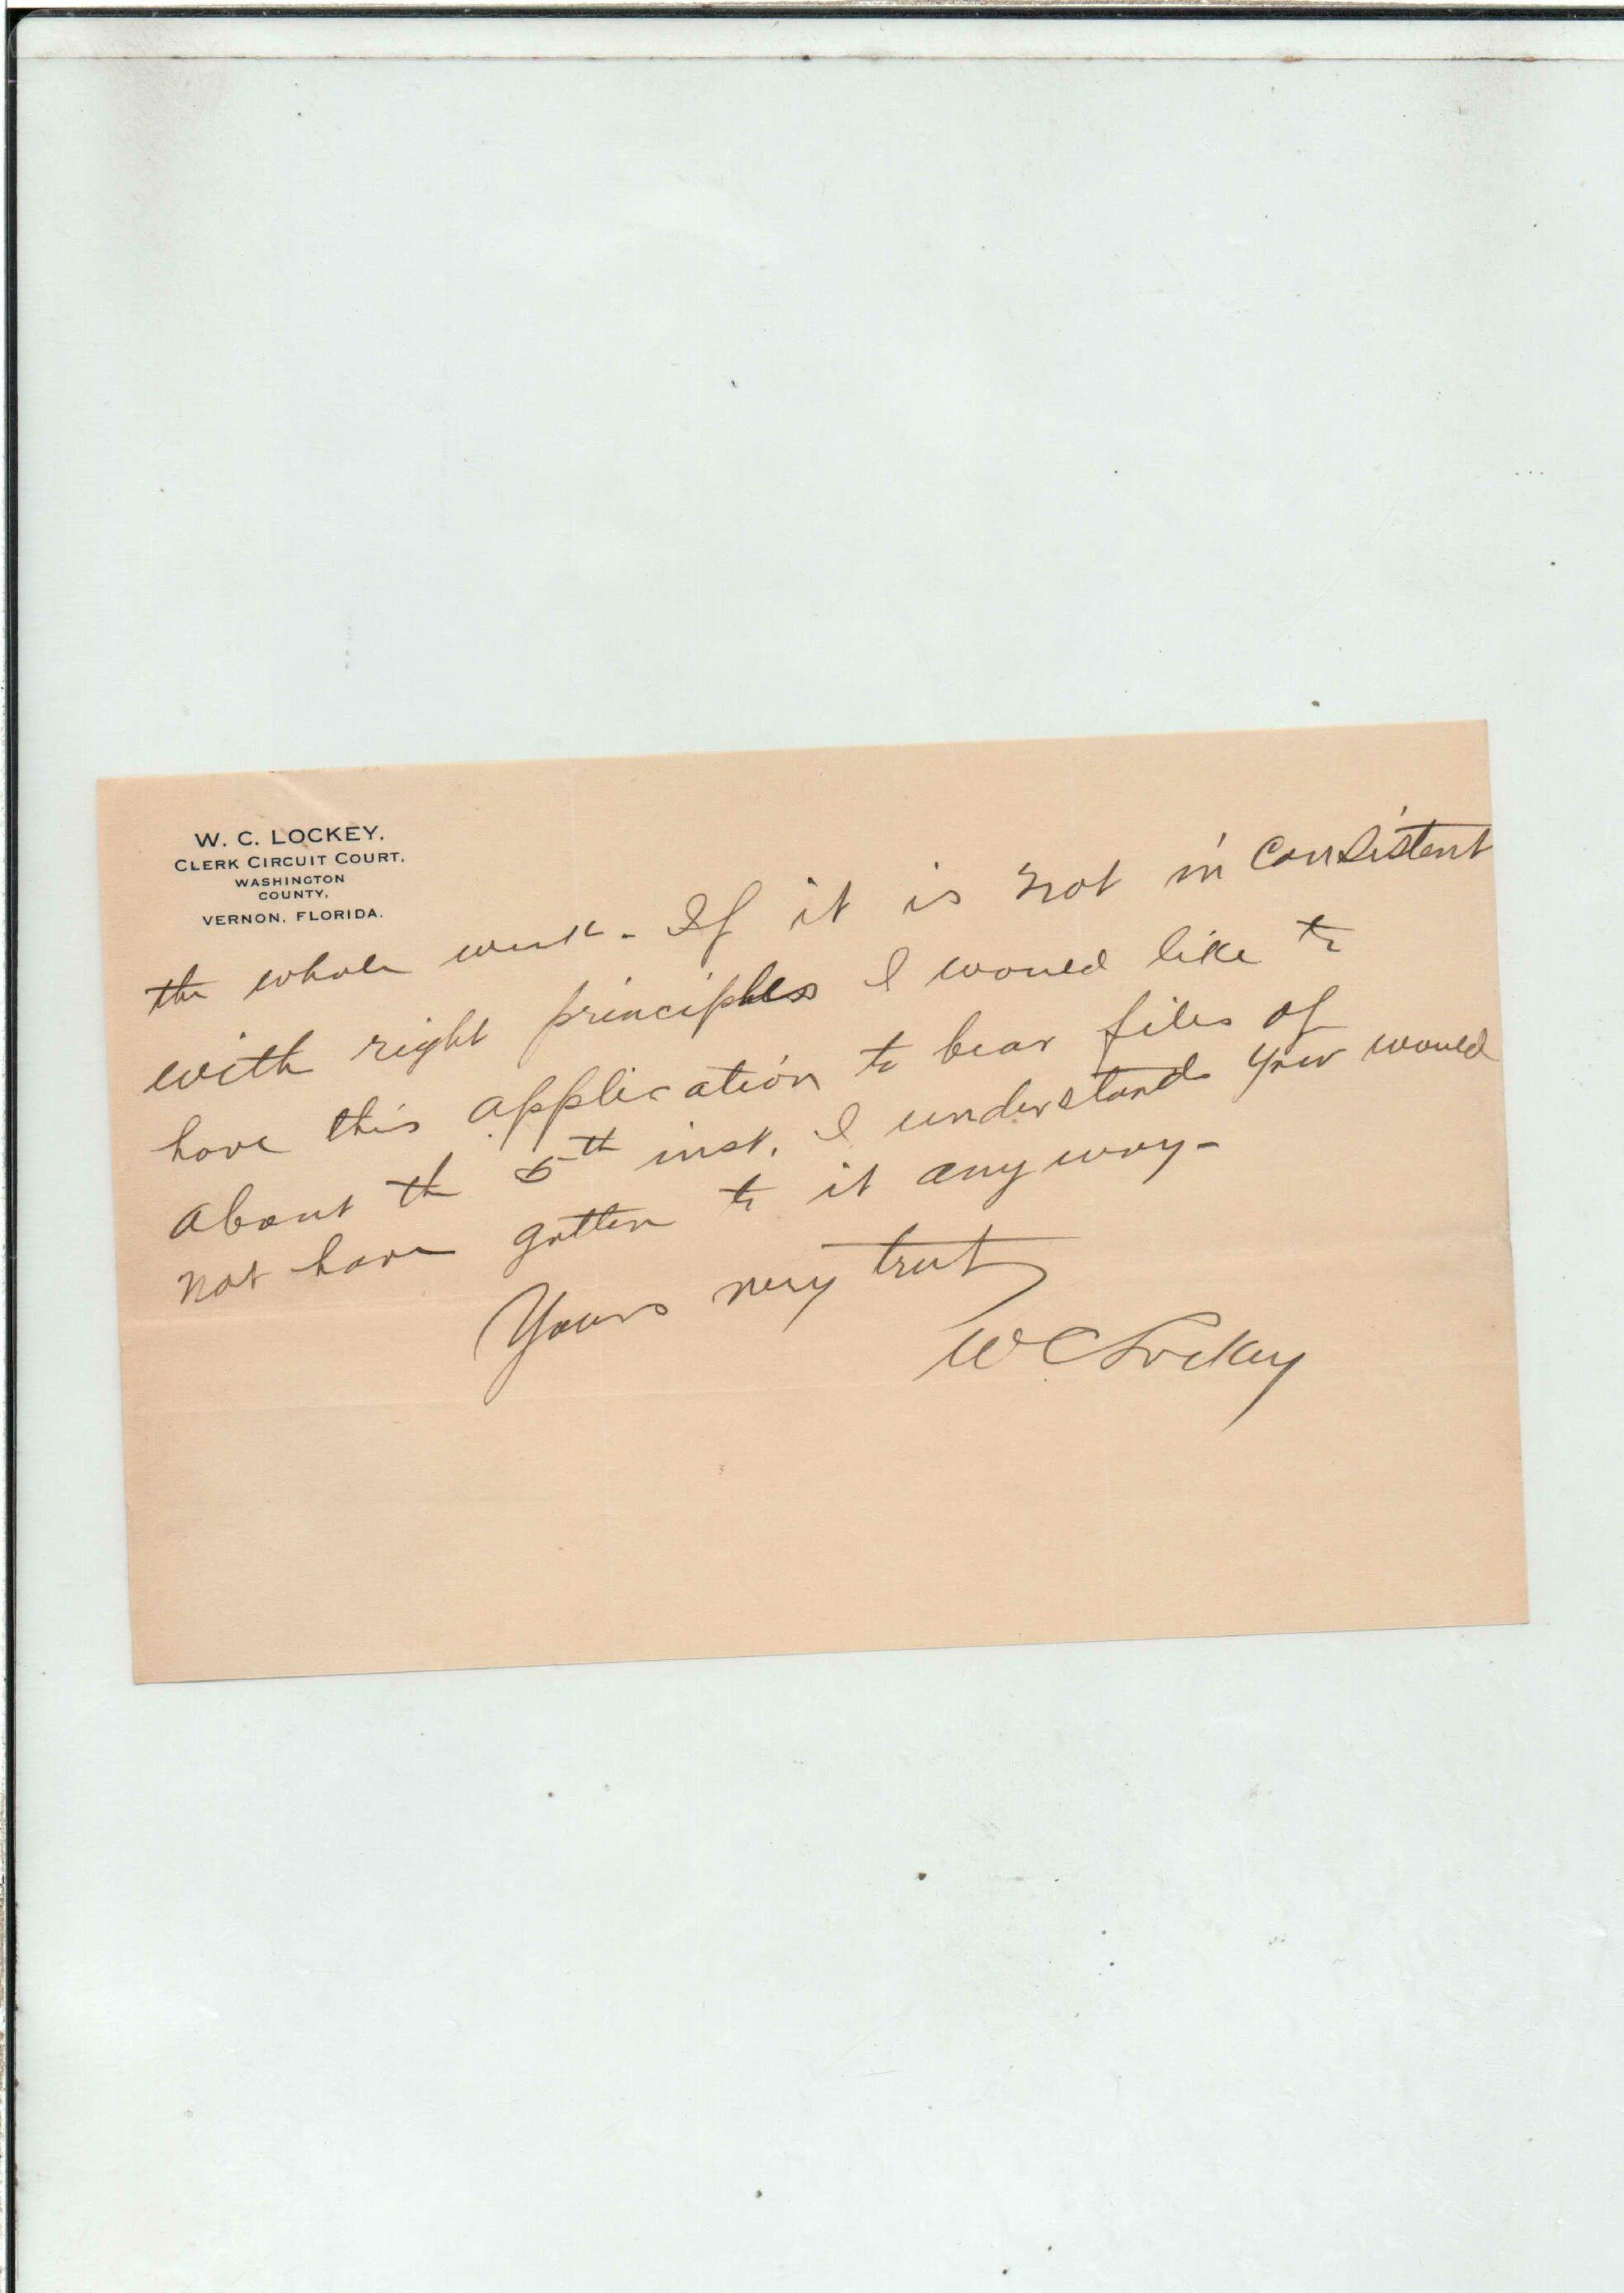 W. C. LOCKEY,
CLERK CIRCUIT COURT,
WASHINGTON
COUNTY,
VERNON, FLORIDA.
the whole week - If it is not in consistent
with right principles I would like to
have this application to bear files of
about the 5th inst. I understand you would
not have gotten to it any way -
Yours very truly
W C Lockey